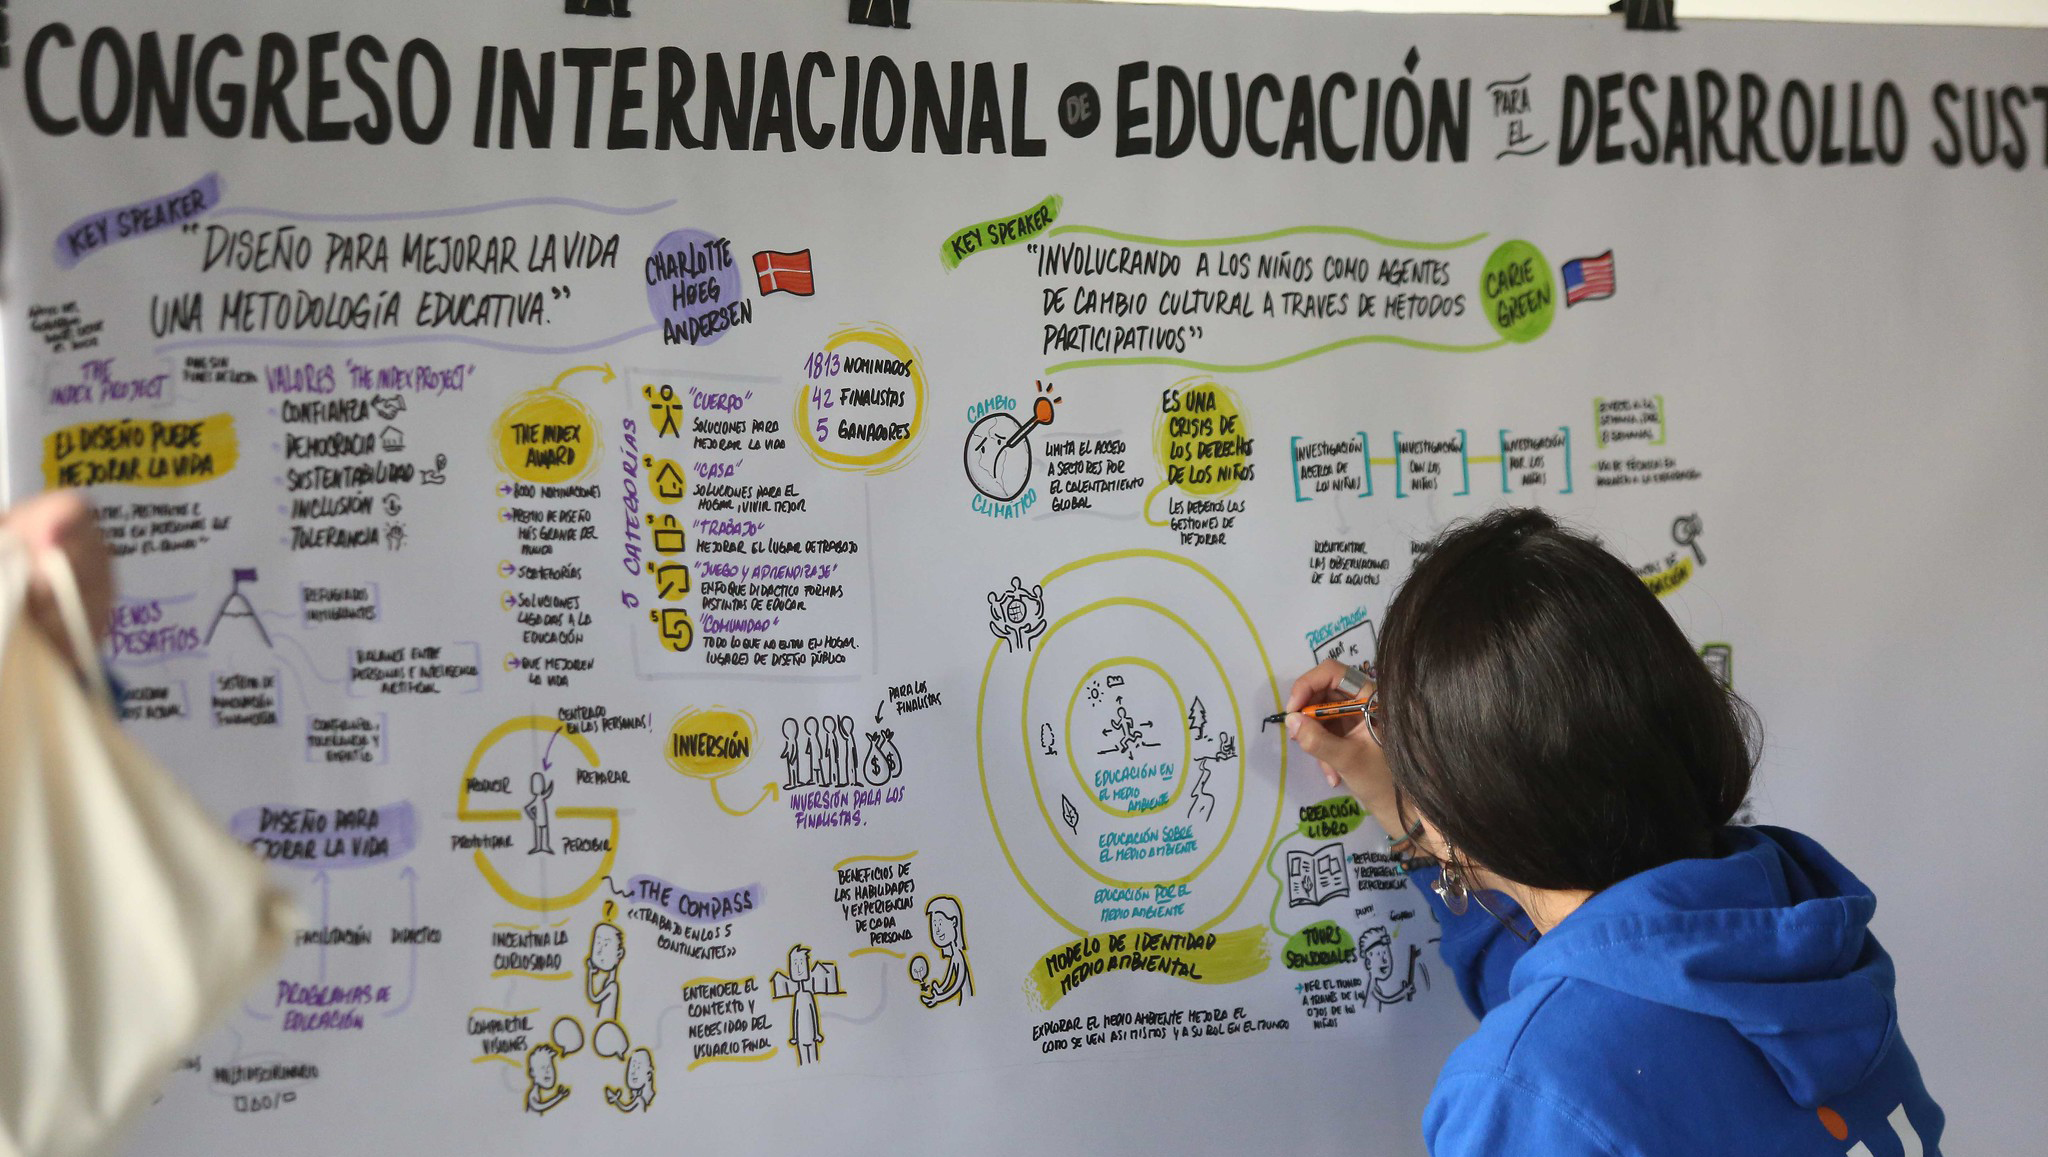 CONGRESO INTERNACIONAL DE EDUCACIÓN PARA EL DESARROLLO SUST
KEY SPEAKER
"DISEÑO PARA MEJORAR LA VIDA
UNA METODOLOGÍA EDUCATIVA."
CHARLOTTE
HØEG
ANDERSEN
THE
INDEX PROJECT
EL DISEÑO PUEDE
MEJORAR LA VIDA
VALORES "THE INDEX PROJECT"
- CONFIANZA
- DEMOCRACIA
- SUSTENTABILIDAD
- INCLUSIÓN
- TOLERANCIA
DESAFÍOS
REFUGIADOS
INMIGRANTES
BALANCE ENTRE
PERSONAS E INTELIGENCIA
ARTIFICIAL
SISTEMA DE
INNOVACIÓN
CONFIANZA,
TOLERANCIA Y
EMPATÍA
DISEÑO PARA
MEJORAR LA VIDA
FACILITACIÓN DIDÁCTICO
PROGRAMAS DE
EDUCACIÓN
MULTIDISCIPLINARIO
THE INDEX
AWARD
NOMINACIONES
PREMIO DE DISEÑO
MÁS GRANDE DEL
MUNDO
5 CATEGORÍAS
SOLUCIONES
LIGADAS A LA
EDUCACIÓN
QUE MEJOREN
LA VIDA
5 CATEGORÍAS
1 "CUERPO"
SOLUCIONES PARA
MEJORAR LA VIDA
2 "CASA"
SOLUCIONES PARA EL
HOGAR, VIVIR MEJOR
3 "TRABAJO"
MEJORAR EL LUGAR DE TRABAJO
4 "JUEGO Y APRENDIZAJE"
ENFOQUE DIDÁCTICO FORMAS
DISTINTAS DE EDUCAR
5 "COMUNIDAD"
TODO LO QUE NO ENTRA EN HOGAR.
LUGARES DE DISEÑO PÚBLICO
1813 NOMINADOS
42 FINALISTAS
5 GANADORES
CENTRADO
EN LAS PERSONAS!
PRODUCIR
PREPARAR
PROTOTIPAR
PERCIBIR
THE COMPASS
"TRABAJO EN LOS 5
CONTINENTES"
INVERSIÓN
PARA LOS
FINALISTAS
$ $
INVERSIÓN PARA LOS
FINALISTAS.
INCENTIVA LA
CURIOSIDAD
?
COMPARTIR
VISIONES
ENTENDER EL
CONTEXTO Y
NECESIDAD DEL
USUARIO FINAL
BENEFICIOS DE
LAS HABILIDADES
Y EXPERIENCIAS
DE CADA
PERSONA
KEY SPEAKER
"INVOLUCRANDO A LOS NIÑOS COMO AGENTES
DE CAMBIO CULTURAL A TRAVES DE METODOS
PARTICIPATIVOS"
CARIE
GREEN
CAMBIO
CLIMÁTICO
LIMITA EL ACCESO
A SECTORES POR
EL CALENTAMIENTO
GLOBAL
ES UNA
CRISIS DE
LOS DERECHOS
DE LOS NIÑOS
LES DEBEMOS LAS
GESTIONES DE
MEJORAR
INVESTIGACIÓN
ACERCA DE
LOS NIÑOS
INVESTIGACIÓN
CON LOS
NIÑOS
INVESTIGACIÓN
POR LOS
NIÑOS
DOCUMENTAR
LAS OBSERVACIONES
DE LOS ADULTOS
PRESENTACIÓN
EDUCACIÓN EN
EL MEDIO
AMBIENTE
EDUCACIÓN SOBRE
EL MEDIO AMBIENTE
EDUCACIÓN POR EL
MEDIO AMBIENTE
MODELO DE IDENTIDAD
MEDIO AMBIENTAL
EXPLORAR EL MEDIO AMBIENTE MEJORA EL
COMO SE VEN ASI MISMOS Y A SU ROL EN EL MUNDO
CREACIÓN
LIBRO
TOURS
SENSORIALES
VER EL MUNDO
A TRAVÉS DE LOS
OJOS DE LOS
NIÑOS